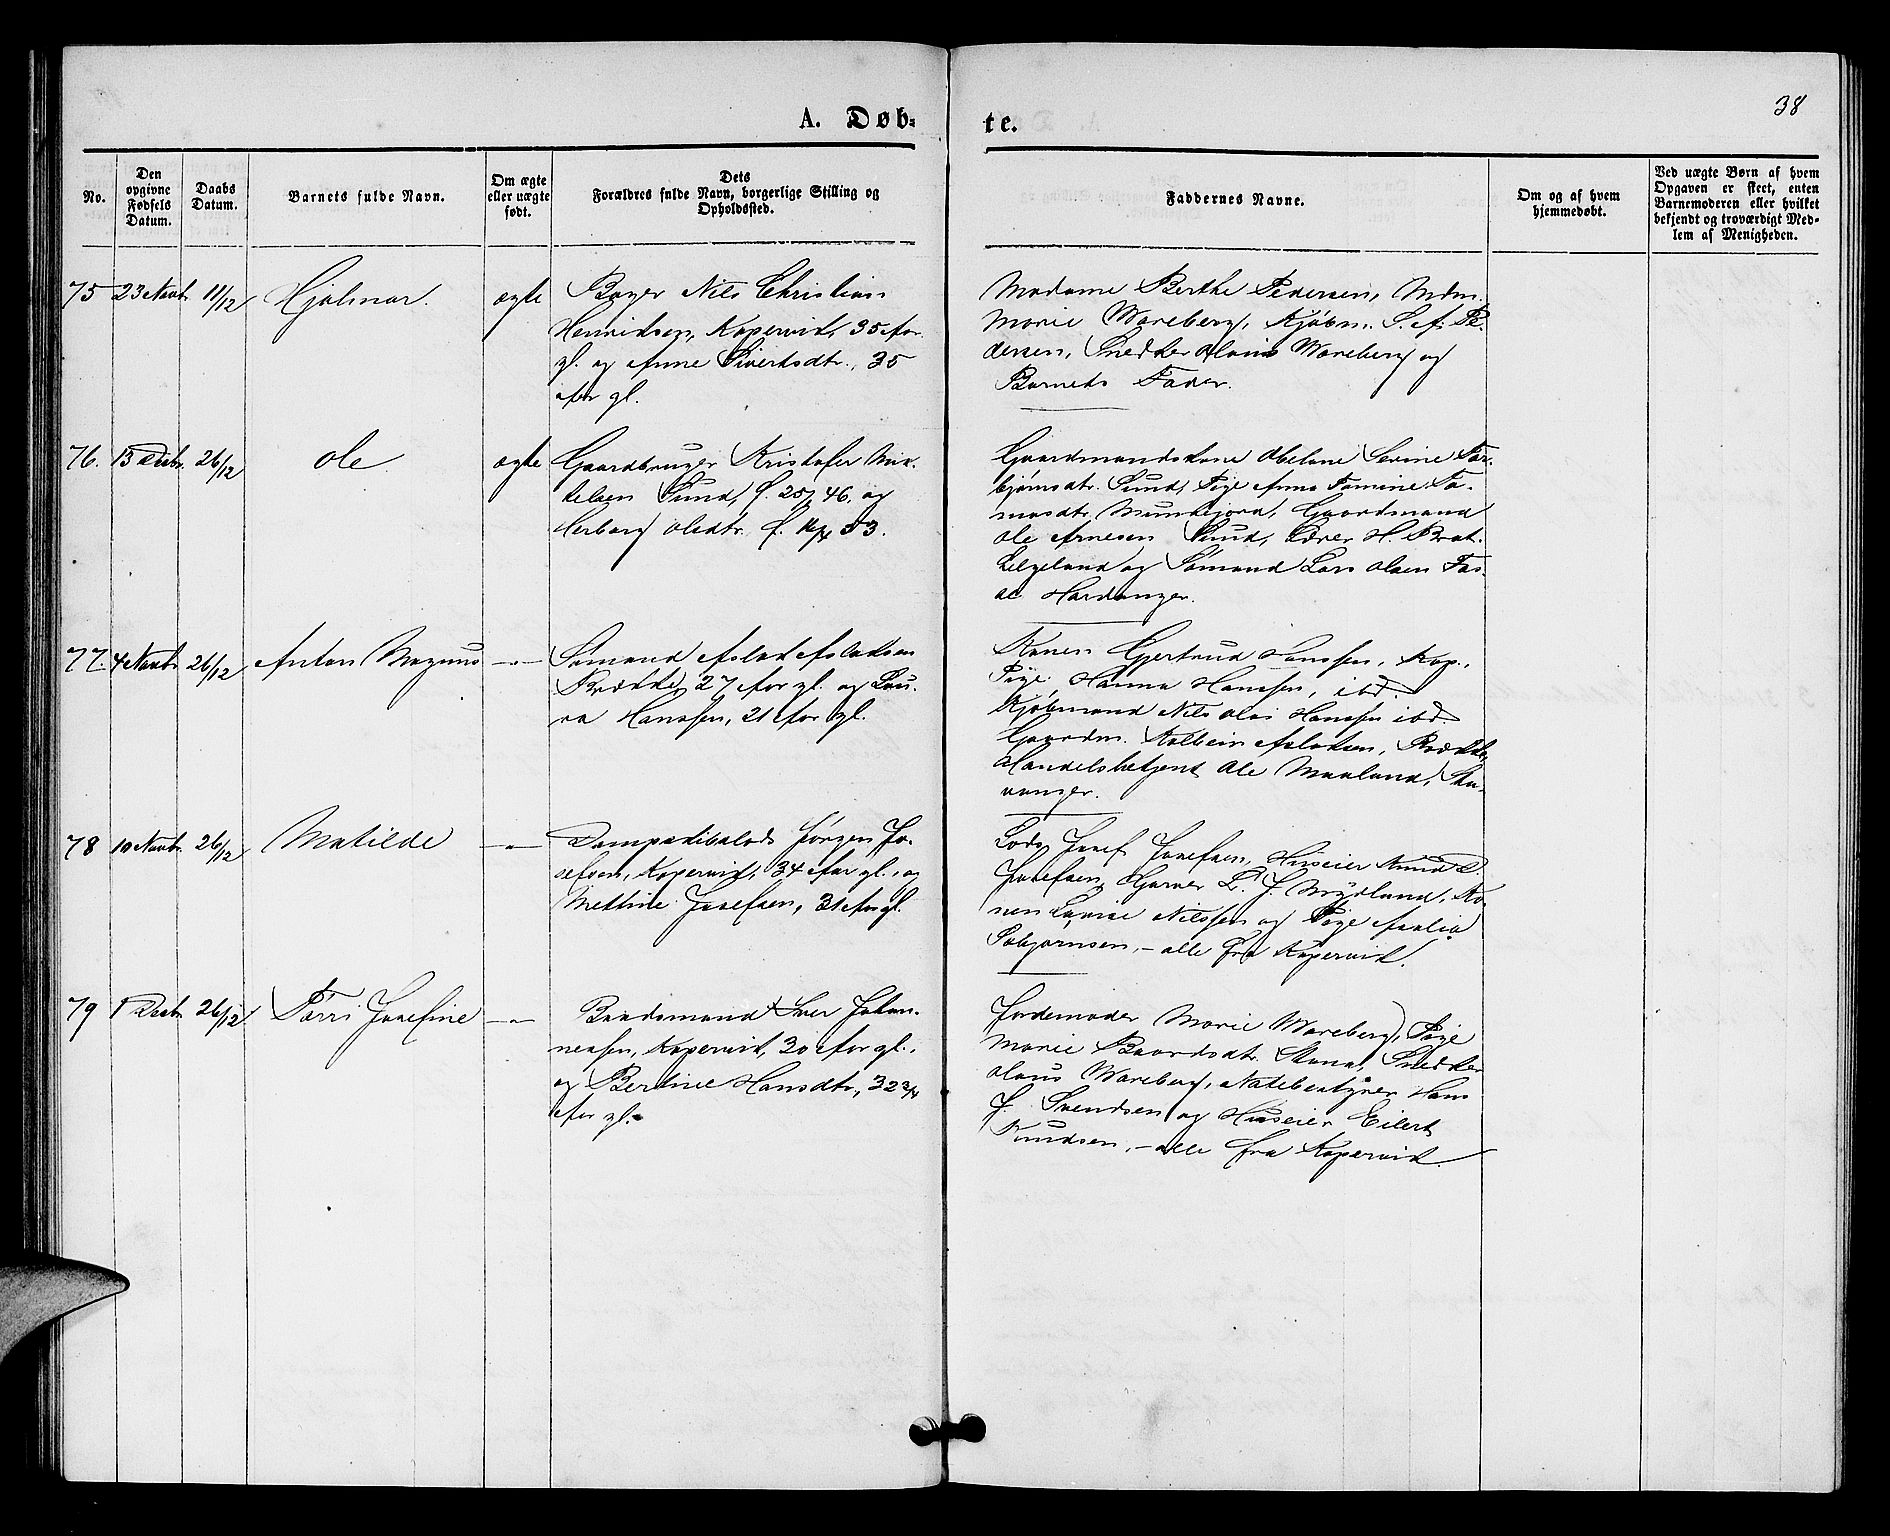 38
A. Døb-
te.
No.
Den opgivne Fødsels Datum.
Daabs Datum.
Barnets fulde Navn.
Om ægte eller uægte født.
Dets Forældres fulde Navn, borgerlige Stilling og Opholdssted.
Faddernes Navne.
Om og af hvem hjemmedøbt.
Ved uægte Børn af hvem Opgaven er skeet, enten Barnemoderen eller hvilket bekjendt og troværdigt Medlem af Menigheden.
75 23 Novbr 11/12 Hjalmar. ægte Bager Nils Christian
Henriksen, Kopervik, 35 Aar
gl. og Anne Sivertsdtr., 35
Aar gl.
Madame Berthe Pedersen, Mdm.
Marie Wareberg, Kjøbm. S. A. Pe-
dersen, Snedker Olaus Wareberg og
Barnets Fader.
76. 13 Decbr. 26/12 Ole. ægte Gaardbruger Kristofer Mik-
kelsen Sund, f. 25/7 46. og
Herborg Olsdtr. f. 53.
Gaardmandskone Abelone Serine Tor-
bjørnsdtr. Sund, Pige Anna Tomine To-
masdtr. Munkejord, Gaardmand
Ole Arnesen Sund, Lærer H. Brat-
Helgeland og Sømand Lars Olsen
Hardanger.
77. 4 Novbr 26/12 Anton Magnus -"- Sømand Aslak Aslaksen
Brække, 27 Aar gl. og Lau-
ra Hanssen, 21 Aar gl.
Konen Gjertrud Hanssen, Kop.,
Pige Hanna Hanssen, ibd.
Kjøbmand Nils Olai Hanssen ibd.
Gaardm. Kolbein Aslaksen, Brække,
Handelsbetjent Ole Maaland, Sta-
vanger.
78 10 Novbr. 26/12 Matilde -"- Dampskibslods Jørgen Jo-
sefsen, Kopervik, 34 Aar gl., og
Mettine Josefsen, 31 Aar gl.
Lods Josef Josefsen, Huseier Knud D.
Josefsen, Garver L. J. Mydland, Ko-
nen Lovise Nilssen og Pige Amalia
Sebjørnsen, - alle fra Kopervik.
79 1 Decbr. 26/12. Torri Josefine -"- Baadsmand Iver Johan-
nessen, Kopervik, 30 Aar gl.,
og Bertine Hansdtr., 32 3/4
Aar gl.
Jordemoder Marie Wareberg, Pige
Marie Baardsdtr. Stana, Snedker
Olaus Wareberg, Notebestyrer Hans
J. Svendsen og Huseier Eilert
Knudsen, - alle fra Kopervik.